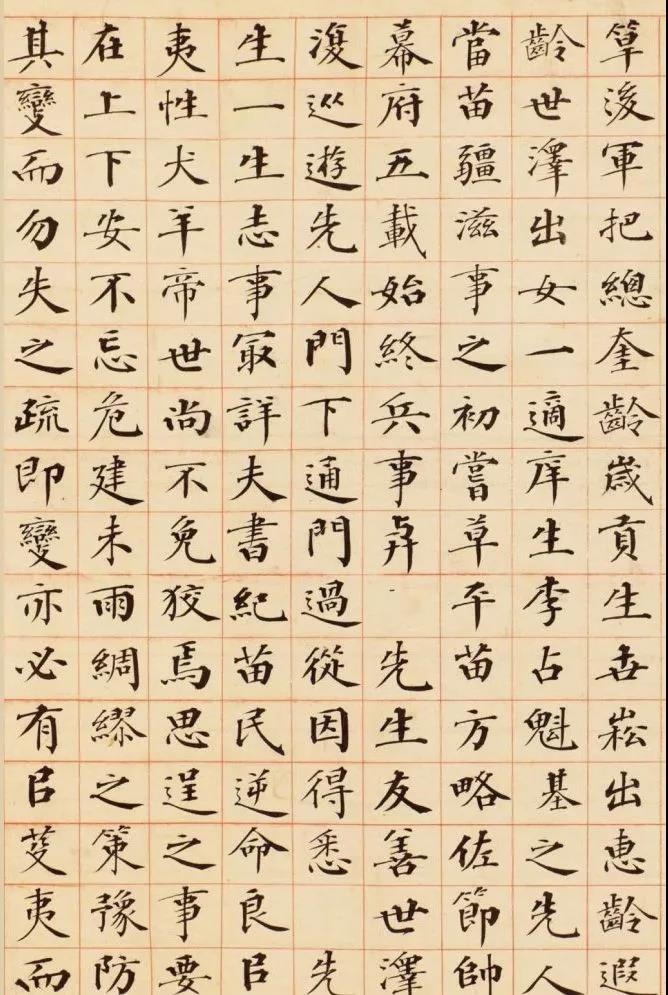 筸後軍把總奎齡歲貢生世崧出惠齡遐
齡世澤出女一適庠生李占魁基之先人
當苗疆滋事之初嘗草平苗方略佐節帥
幕府五載始終兵事與 先生友善世澤
復巡遊先人門下通門過從因得悉 先
生一生志事冣詳夫書紀苗民逆命良㠯
夷性犬羊帝世尚不免狡焉思逞之事要
在上下安不忘危建未雨綢繆之策豫防
其變而勿失之疏即變亦必有㠯芟夷而